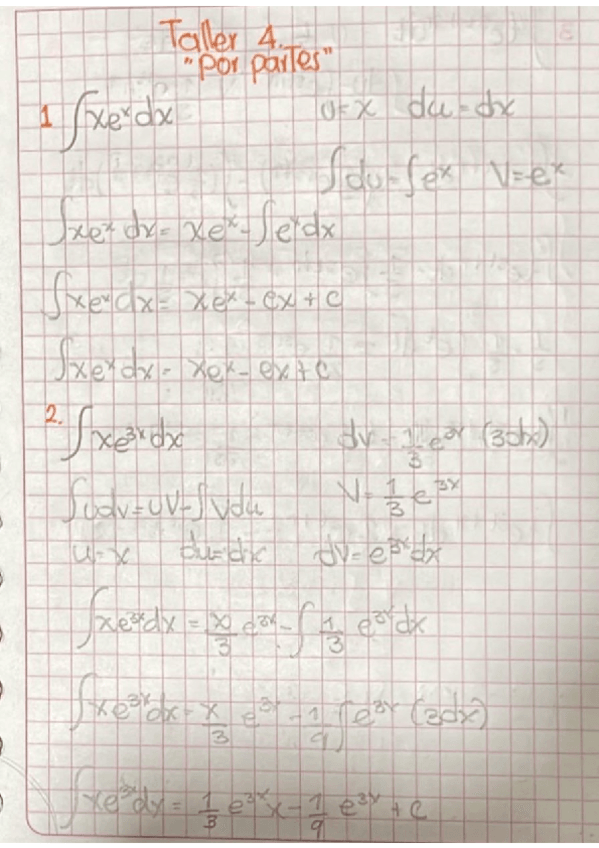 Taller 4.
"Por partes"
1 ∫xeˣdx u=x du=dx
∫dv=∫eˣ V=eˣ
∫xeˣ dx= xeˣ-∫eˣdx
∫xeˣdx= xeˣ-ex+c
∫xeˣdx= xeˣ-ex+c
2. ∫xe³ˣdx dv=1/3 e³ˣ (3dx)
∫udv=UV-∫Vdu V=1/3 e³ˣ
u=x du=dx dv=e³ˣdx
∫xe³ˣdx = x/3 e³ˣ-∫1/3 e³ˣdx
∫xe³ˣdx=x/3 e³ˣ-1/9∫e³ˣ (3dx)
∫xe³ˣdx = 1/3 e³ˣx-1/9 e³ˣ+c